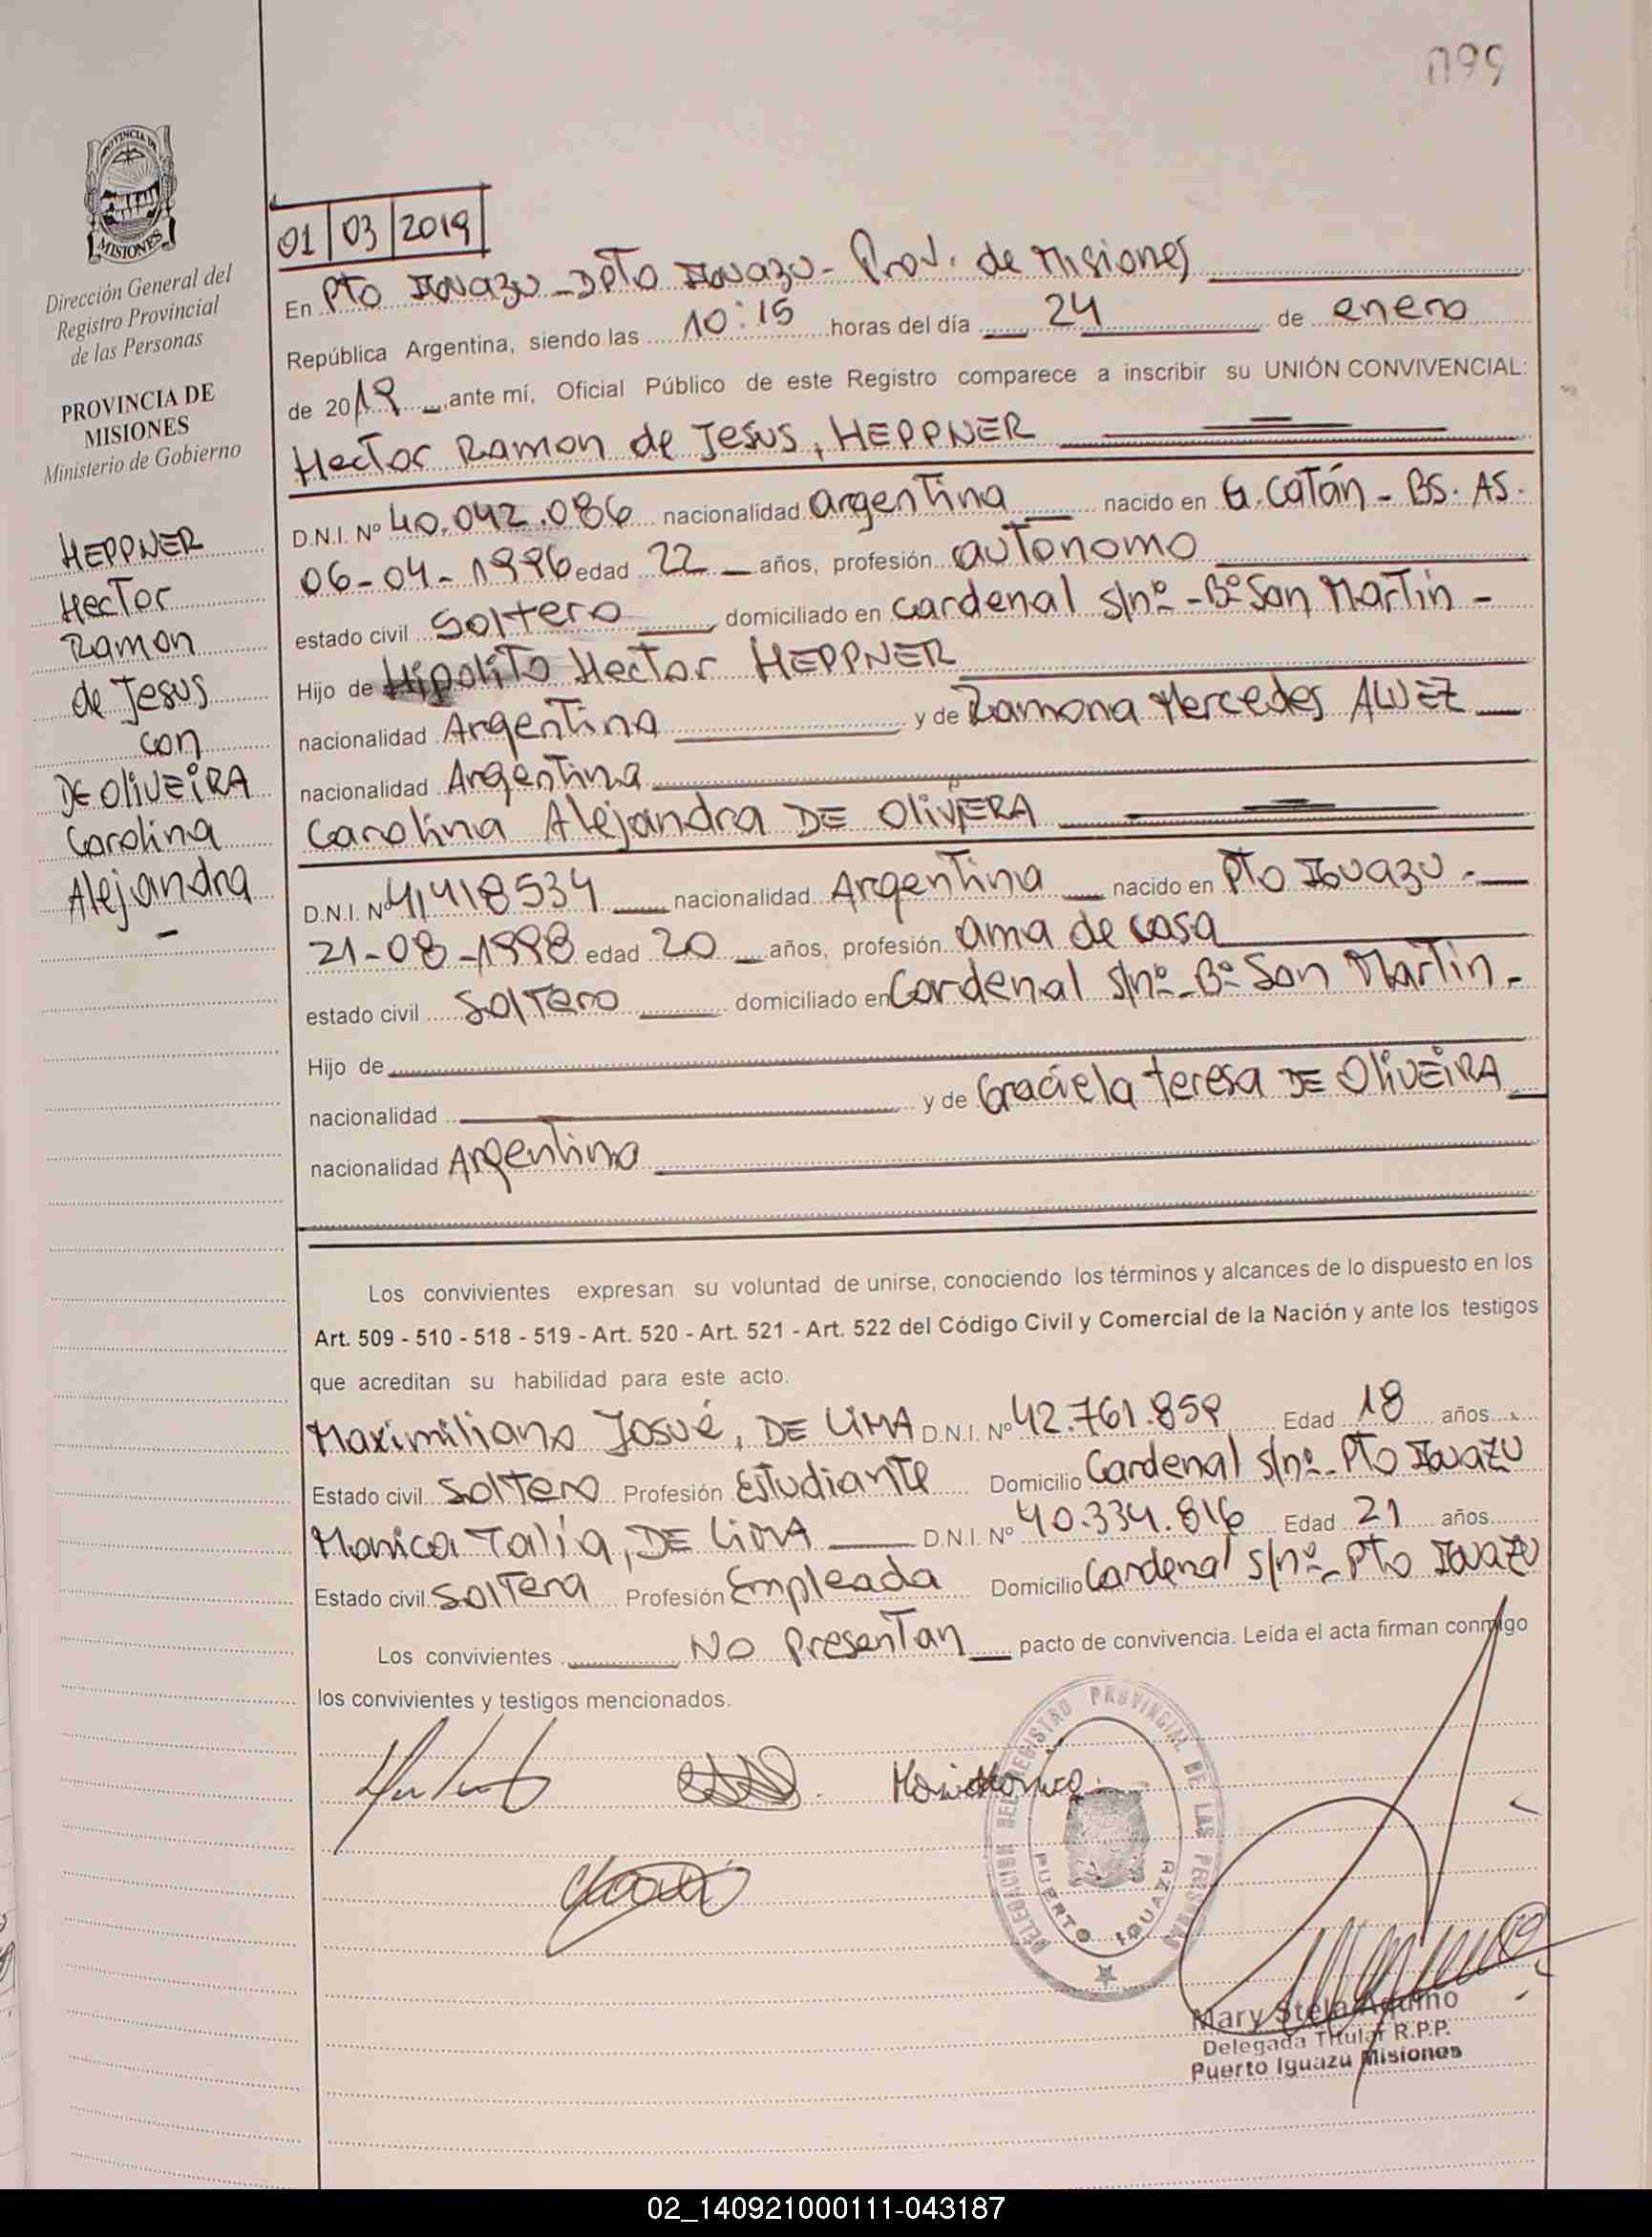 099
PROVINCIA DE
MISIONES
Dirección General del
Registro Provincial
de las Personas
PROVINCIA DE
MISIONES
Ministerio de Gobierno
HEPPNER
Hector
Ramon
de Jesus
con
DE OLIVEIRA
Carolina
Alejandra
01 | 03 | 2019
En Pto Iguazu - Dpto Iguazu - Prov. de Misiones
República Argentina, siendo las 10:15 horas del día 24 de enero
de 2019, ante mí, Oficial Público de este Registro comparece a inscribir su UNIÓN CONVIVENCIAL:
Hector Ramon de Jesus, HEPPNER
D.N.I. Nº 40.042.086 nacionalidad Argentina nacido en G. Catán - BS. AS.
06-04-1996 edad 22 años, profesión autonomo
estado civil Soltero domiciliado en Cardenal s/nº - Bº San Martin -
Hijo de Hipolito Hector HEPPNER
nacionalidad Argentina y de Ramona Mercedes ALVEZ
nacionalidad Argentina
Carolina Alejandra DE OLIVERA
D.N.I. Nº 41418534 nacionalidad Argentina nacido en Pto Iguazu -
21-08-1998 edad 20 años, profesión ama de casa
estado civil Soltero domiciliado en Cardenal s/nº - Bº San Martin -
Hijo de
nacionalidad y de Graciela teresa DE OLIVEIRA
nacionalidad Argentina
Los convivientes expresan su voluntad de unirse, conociendo los términos y alcances de lo dispuesto en los
Art. 509 - 510 - 518 - 519 - Art. 520 - Art. 521 - Art. 522 del Código Civil y Comercial de la Nación y ante los testigos
que acreditan su habilidad para este acto.
Maximiliano Josué, DE LIMA D.N.I. Nº 42.761.859 Edad 18 años
Estado civil Soltero Profesión Estudiante Domicilio Cardenal s/nº - Pto Iguazu
Monica Talía, DE LIMA D.N.I. Nº 40.334.816 Edad 21 años
Estado civil Soltera Profesión Empleada Domicilio Cardenal s/nº - Pto Iguazu
Los convivientes No Presentan pacto de convivencia. Leída el acta firman conmigo
los convivientes y testigos mencionados.
DELEGACION DEL REGISTRO PROVINCIAL DE LAS PERSONAS
PUERTO IGUAZU
Mary Stela Aquino
Delegada Titular R.P.P.
Puerto Iguazú Misiones
02_140921000111-043187